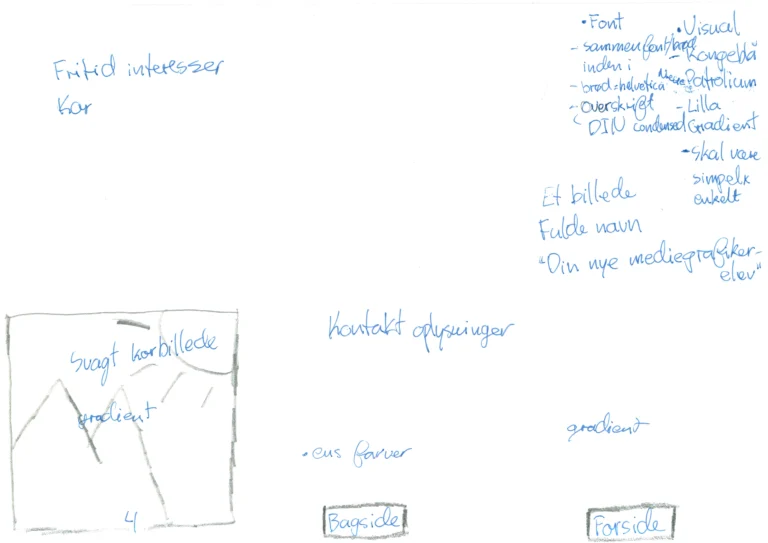 Fritid interesser
Kor
• Font
- sammen font/brød
inden i
- brød = helvetica Neue
- Overskrift
DIN condensed
• Visual
- Kongeblå
- Patrolium
- Lilla
Gradient
• skal være
simpelt
enkelt
Et billede
Fulde navn
"Din nye mediegrafiker-
elev"
Svagt korbillede
gradient
4
Kontakt oplysninger
• ens farver
Bagside
gradient
Forside